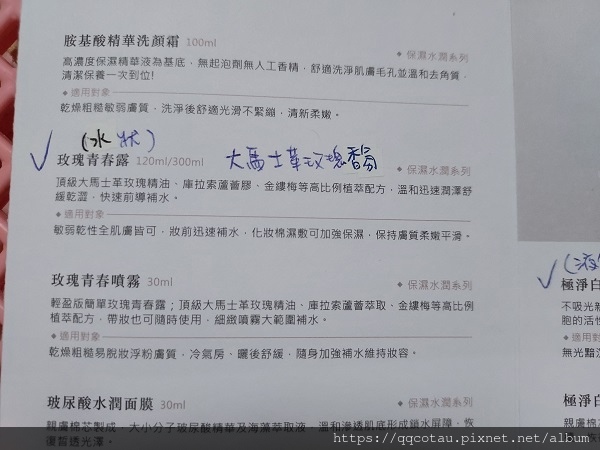 胺基酸精華洗顏霜 100ml
◆ 保濕水潤系列
高濃度保濕精華液為基底，無起泡劑無人工香精，舒適洗淨肌膚毛孔並溫和去角質，
清潔保養一次到位!
◆ 適用對象
乾燥粗糙敏弱膚質，洗淨後舒適光滑不緊繃，清新柔嫩。
(水狀)
玫瑰青春露 120ml/300ml 大馬士革玫瑰香氛
◆ 保濕水潤系列
頂級大馬士革玫瑰精油、庫拉索蘆薈膠、金縷梅等高比例植萃配方，溫和迅速潤澤舒
緩乾澀，快速前導補水。
◆ 適用對象
敏弱乾性全肌膚皆可，妝前迅速補水，化妝棉濕敷可加強保濕，保持膚質柔嫩平滑。
玫瑰青春噴霧 30ml
◆ 保濕水潤系列
輕盈版簡單玫瑰青春露；頂級大馬士革玫瑰精油、庫拉索蘆薈萃取、金縷梅等高比例
植萃配方，帶妝也可隨時使用，細緻噴霧大範圍補水。
◆ 適用對象
乾燥粗糙易脫妝浮粉膚質，冷氣房、曬後舒緩，隨身加強補水維持妝容。
玻尿酸水潤面膜 30ml
◆ 保濕水潤系列
親膚棉芯製成，大小分子玻尿酸精華及海藻萃取液，溫和滲透肌底形成鎖水屏障，恢
復皙透光澤。
(液
極淨白
不吸光新
胞的活性
◆ 適用對
無光黯沉
極淨白
親膚棉
https://qqcotau.pixnet.net/album